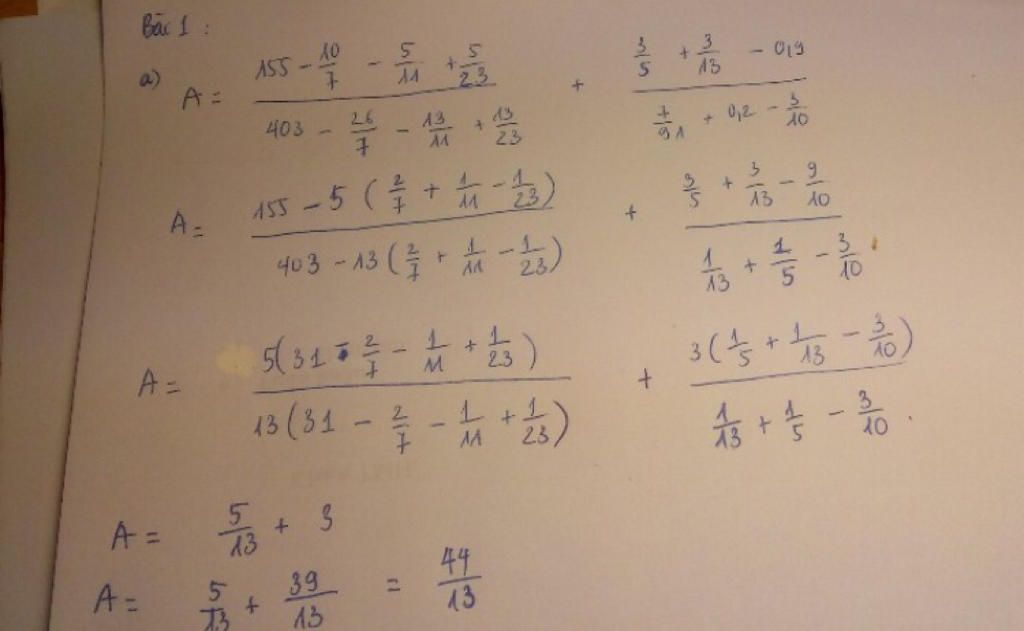 Bài 1 :
a) A = \frac{155 - \frac{10}{7} - \frac{5}{11} + \frac{5}{23}}{403 - \frac{26}{7} - \frac{13}{11} + \frac{13}{23}} + \frac{\frac{3}{5} + \frac{3}{13} - 0,9}{\frac{7}{91} + 0,2 - \frac{3}{10}}
A = \frac{155 - 5 ( \frac{2}{7} + \frac{1}{11} - \frac{1}{23} )}{403 - 13 ( \frac{2}{7} + \frac{1}{11} - \frac{1}{23} )} + \frac{\frac{3}{5} + \frac{3}{13} - \frac{9}{10}}{\frac{1}{13} + \frac{1}{5} - \frac{3}{10}} .
A = \frac{5 ( 31 - \frac{2}{7} - \frac{1}{11} + \frac{1}{23} )}{13 ( 31 - \frac{2}{7} - \frac{1}{11} + \frac{1}{23} )} + \frac{3 ( \frac{1}{5} + \frac{1}{13} - \frac{3}{10} )}{\frac{1}{13} + \frac{1}{5} - \frac{3}{10}} .
A = \frac{5}{13} + 3
A = \frac{5}{13} + \frac{39}{13} = \frac{44}{13}